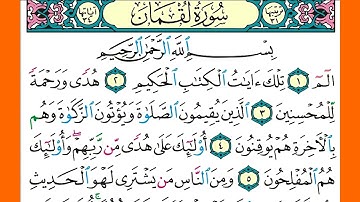 سُورَةُ لُقْمَان
بِسْمِ ٱللَّهِ ٱلرَّحْمَٰنِ ٱلرَّحِيمِ
الٓمٓ ١ تِلْكَ ءَايَٰتُ ٱلْكِتَٰبِ ٱلْحَكِيمِ ٢ هُدًى وَرَحْمَةً
لِّلْمُحْسِنِينَ ٣ ٱلَّذِينَ يُقِيمُونَ ٱلصَّلَوٰةَ وَيُؤْتُونَ ٱلزَّكَوٰةَ وَهُم
بِٱلْأَخِرَةِ هُمْ يُوقِنُونَ ٤ أُو۟لَٰٓئِكَ عَلَىٰ هُدًى مِّن رَّبِّهِمْ ۖ وَأُو۟لَٰٓئِكَ
هُمُ ٱلْمُفْلِحُونَ ٥ وَمِنَ ٱلنَّاسِ مَن يَشْتَرِى لَهْوَ ٱلْحَدِيثِ